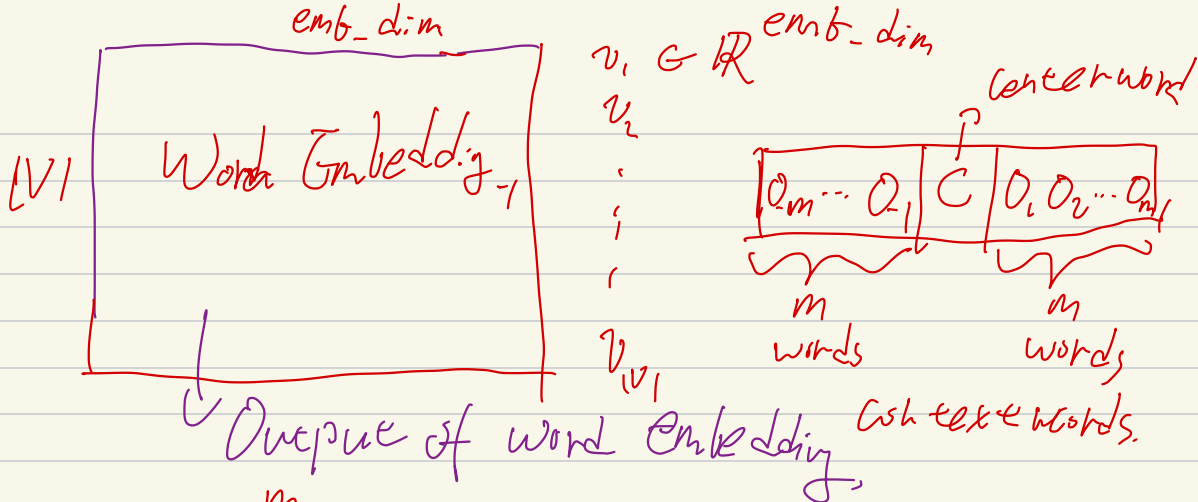 emb_dim
|V|
Word Embeddig
v₁ ∈ ℝ^emb_dim
v₂
v_|V|
center word
O₋ₘ ... O₋₁ C O₁ O₂ ... Oₘ
m words
m words
context words.
Output of word embedding.
m